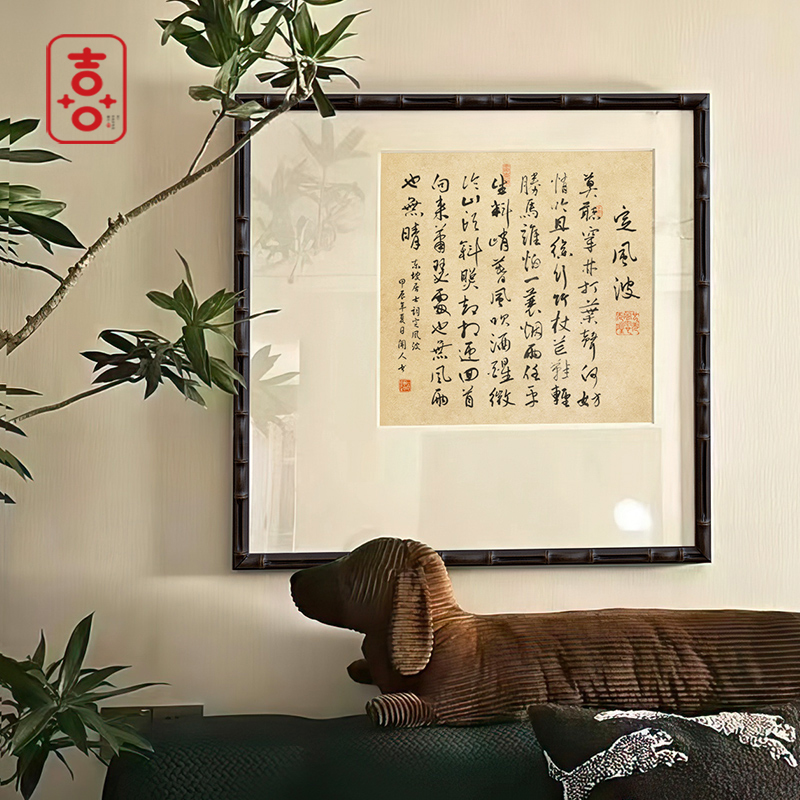 定風波
莫聽穿林打葉聲何妨
吟且徐行竹杖芒鞋輕
勝馬誰怕一蓑烟雨任平
生料峭春風吹酒醒微
冷山頭斜照却相迎回首
向来蕭瑟處也無風雨
也無晴
东坡居士詞定風波
甲辰年夏日闲人书